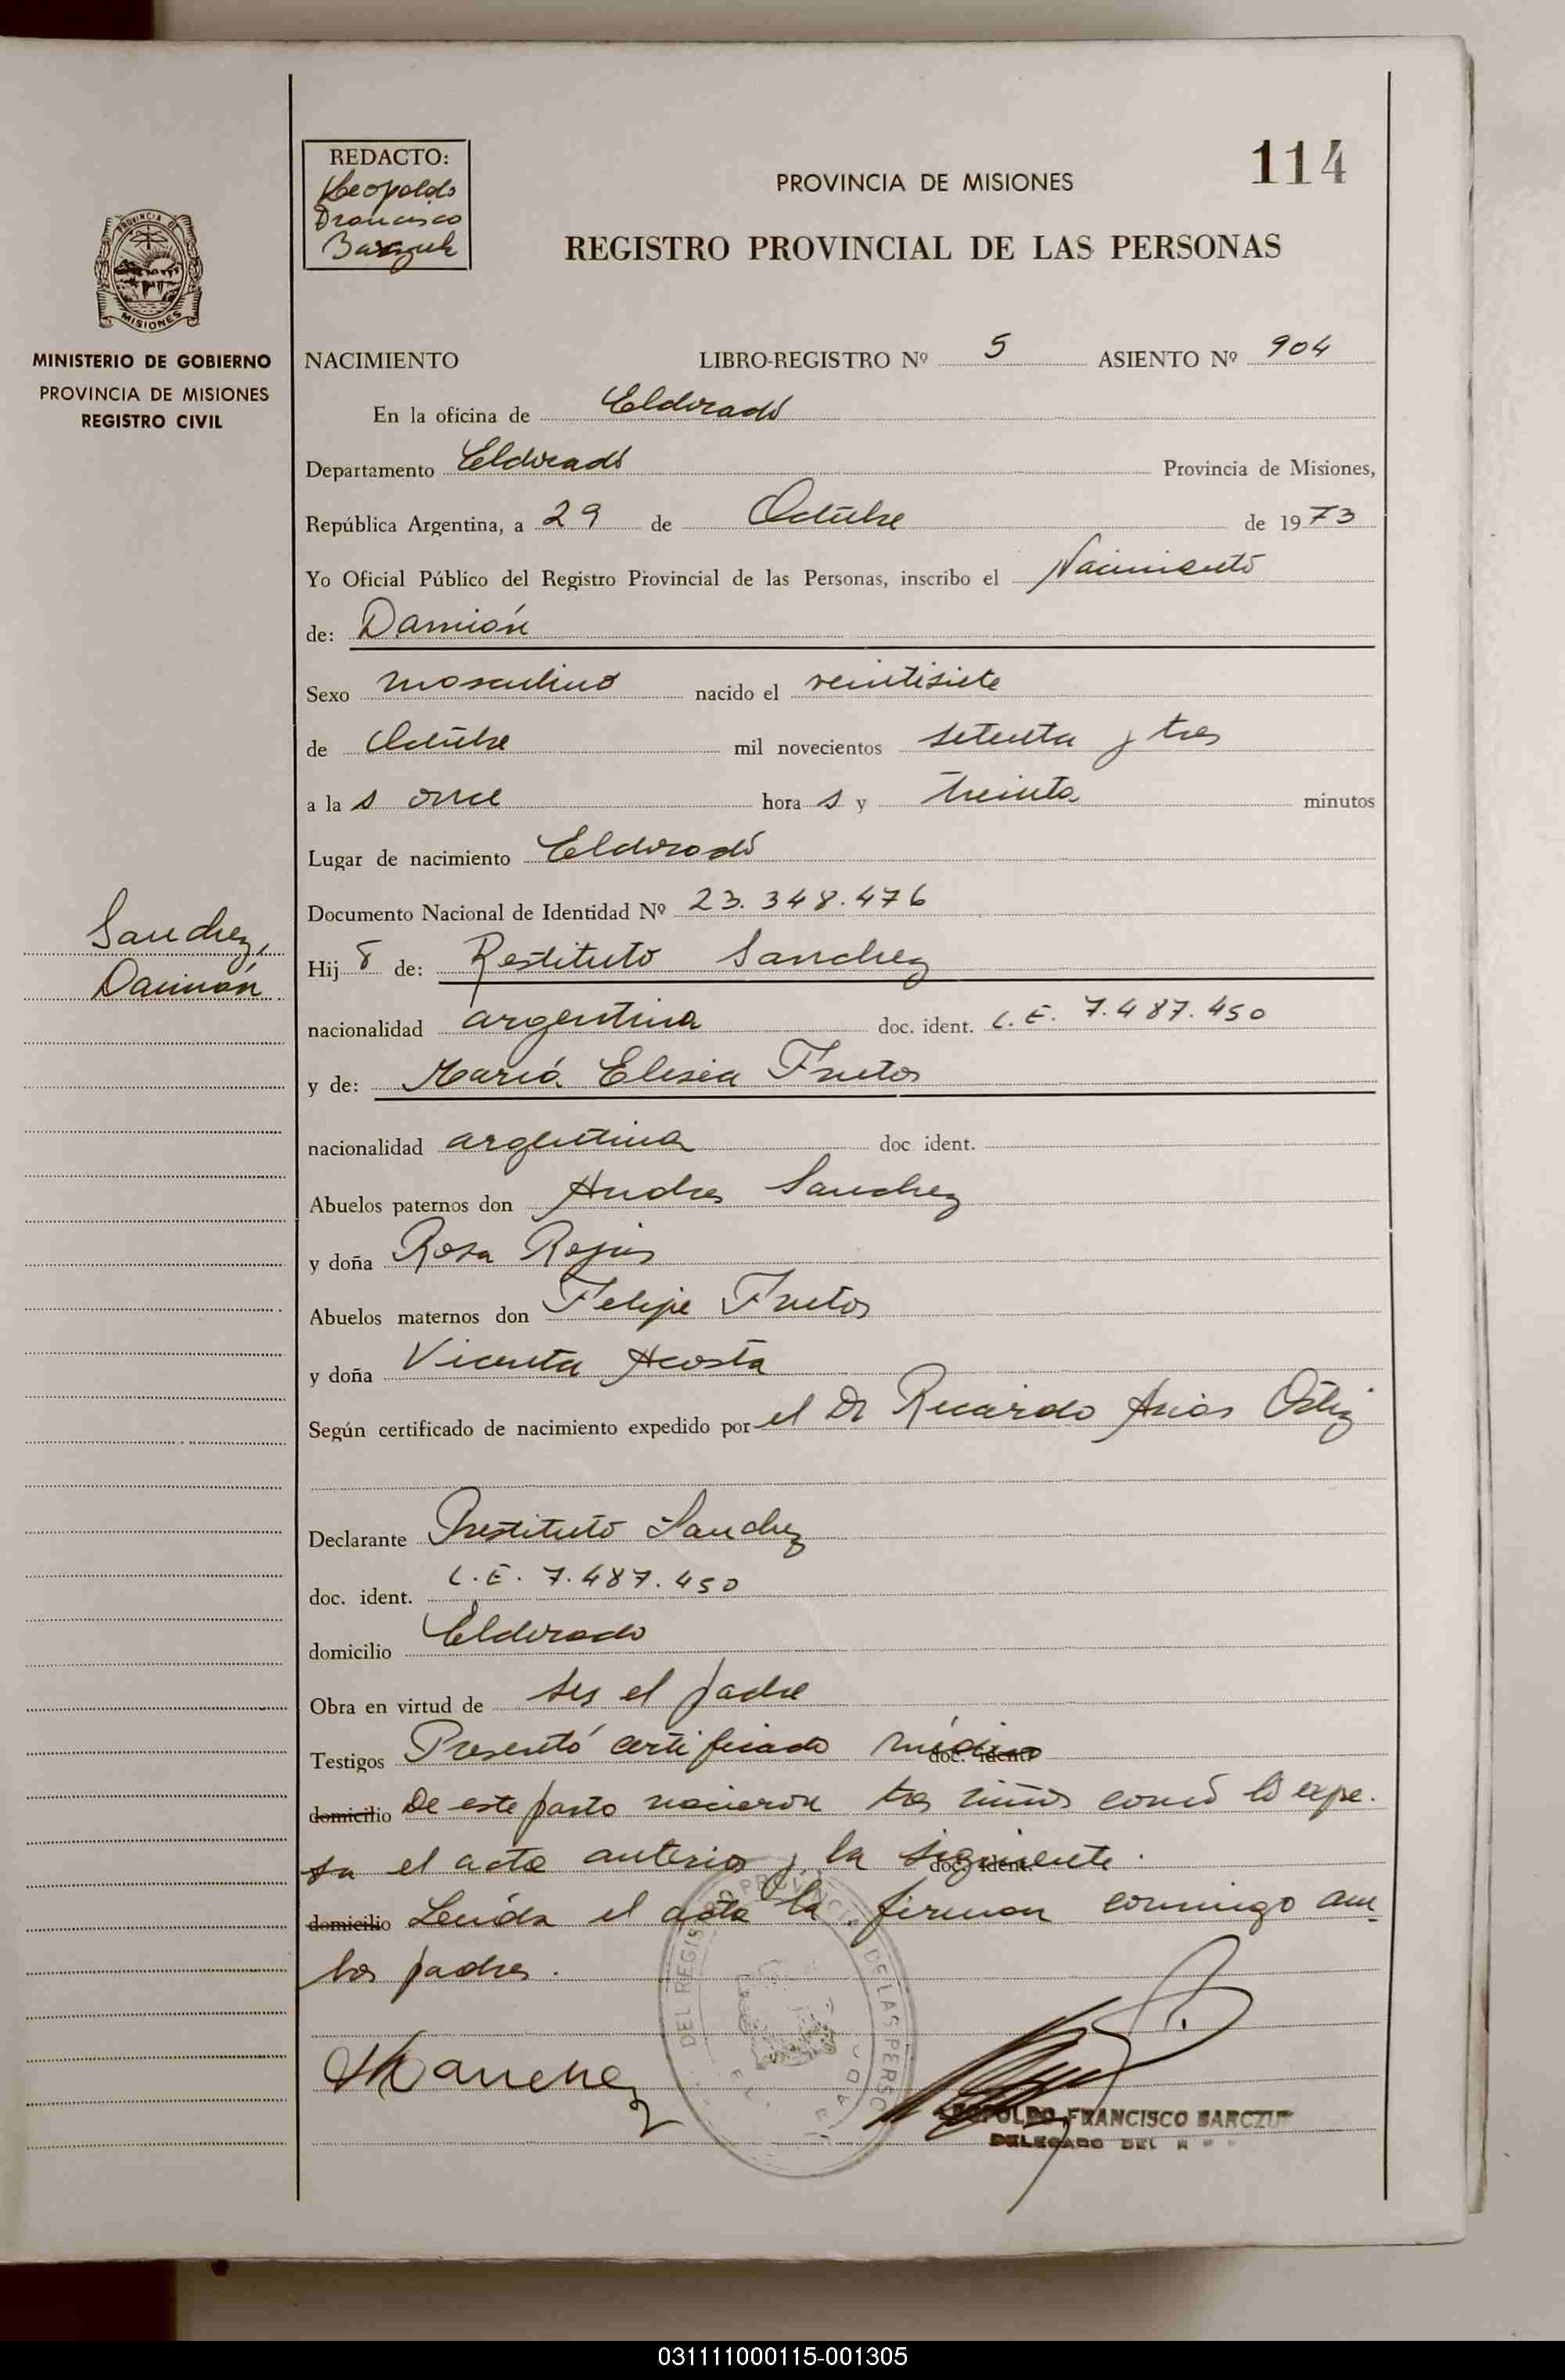 114
REDACTO:
Leopoldo
Francisco
PROVINCIA DE MISIONES
REGISTRO PROVINCIAL DE LAS PERSONAS
PROVINCIA DE
MISIONES
MINISTERIO DE GOBIERNO
PROVINCIA DE MISIONES
REGISTRO CIVIL
NACIMIENTO LIBRO-REGISTRO Nº 5 ASIENTO Nº 904
En la oficina de Eldorado
Departamento Eldorado Provincia de Misiones,
República Argentina, a 29 de Octubre de 1973
Yo Oficial Público del Registro Provincial de las Personas, inscribo el Nacimiento
de: Damián
Sexo masculino nacido el veintisiete
de Octubre mil novecientos setenta y tres
a la s once hora s y treinta minutos
Lugar de nacimiento Eldorado
Documento Nacional de Identidad Nº 23.348.476
Sanchez,
Damián
Hij o de: Restituto Sanchez
nacionalidad argentina doc. ident. L.E. 7.487.450
y de: María Elisea Fretos
nacionalidad argentina doc ident.
Abuelos paternos don Andres Sanchez
y doña Rosa Rojas
Abuelos maternos don Felipe Fretos
y doña Vicenta Acosta
Según certificado de nacimiento expedido por el Dr Ricardo Arias Ortiz
Declarante Restituto Sanchez
doc. ident. L.E. 7.487.450
domicilio Eldorado
Obra en virtud de ser el padre
Testigos Presentó certificado médico doc. ident.
domicilio De este parto nacieron tres niños como lo expe.
sa el acta anterior y la siguiente. doc. ident.
domicilio Leída el acta la firman conmigo am
bos padres.
DEL REGISTRO PROVINCIAL DE LAS PERSO
Sanchez
LEOPOLDO FRANCISCO BARCZUK
DELEGADO DEL R
031111000115-001305